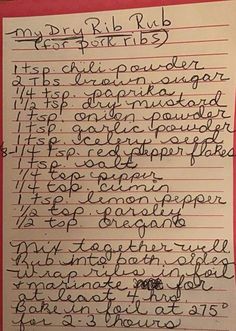 My Dry Rib Rub
(for pork ribs)
1 tsp. chili powder
2 Tbs brown sugar
1/4 tsp. paprika
1 1/2 tsp. dry mustard
1 tsp. onion powder
1 tsp. garlic powder
1 tsp. celery seed
1 tsp. red pepper flakes
1 tsp. salt
1/4 tsp pepper
1/4 tsp. cumin
1 tsp. lemon pepper
1/2 tsp. parsley
1/2 tsp. oregano
Mix together well
Rub into both sides
Wrap ribs in foil
+ marinate for
at least 4 hrs.
Bake in foil at 275°
for 2-3 hours